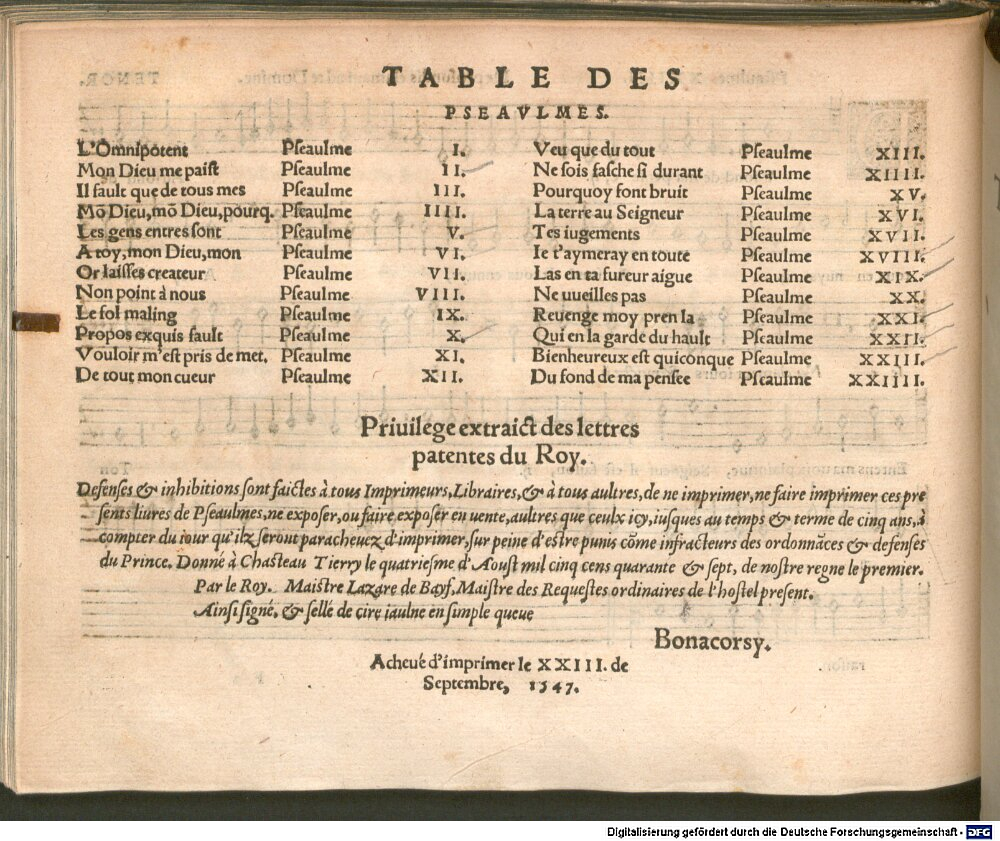 TABLE DES
PSEAVLMES.
L'Omnipotent Pſeaulme I.
Mon Dieu me paiſt Pſeaulme II.
Il fault que de tous mes Pſeaulme III.
Mō Dieu, mō Dieu, pourq. Pſeaulme IIII.
Les gens entres ſont Pſeaulme V.
A toy, mon Dieu, mon Pſeaulme VI.
Or laiſſes createur Pſeaulme VII.
Non point à nous Pſeaulme VIII.
Le fol maling Pſeaulme IX.
Propos exquis fault Pſeaulme X.
Vouloir m'eſt pris de met. Pſeaulme XI.
De tout mon cueur Pſeaulme XII.
Veu que du tout Pſeaulme XIII.
Ne ſois faſche ſi durant Pſeaulme XIIII.
Pourquoy font bruit Pſeaulme XV.
La terre au Seigneur Pſeaulme XVI.
Tes iugements Pſeaulme XVII.
Ie t'aymeray en toute Pſeaulme XVIII.
Las en ta fureur aigue Pſeaulme XIX.
Ne uueilles pas Pſeaulme XX.
Reuenge moy pren la Pſeaulme XXI.
Qui en la garde du hault Pſeaulme XXII.
Bienheureux eſt quiconque Pſeaulme XXIII.
Du fond de ma penſee Pſeaulme XXIIII.
Priuilege extraict des lettres
patentes du Roy.
Defenſes & inhibitions ſont faictes à tous Imprimeurs, Libraires, & à tous aultres, de ne imprimer, ne faire imprimer ces pre
ſents liures de Pſeaulmes, ne expoſer, ou faire expoſer en uente, aultres que ceulx icy, iuſques au temps & terme de cinq ans, à
compter du iour qu'ilz ſeront paracheuez d'imprimer, ſur peine d'eſtre punis cōme infracteurs des ordonnāces & defenſes
du Prince. Donné à Chaſteau Tierry le quatrieſme d'Aouſt mil cinq cens quarante & ſept, de noſtre regne le premier.
Par le Roy. Maiſtre Lazare de Bayf, Maiſtre des Requeſtes ordinaires de l'hoſtel preſent.
Ainſi ſigné, & ſellé de cire iaulne en ſimple queue
Bonacorſy.
Acheué d'imprimer le XXIII. de
Septembre, 1547.
Digitalisierung gefördert durch die Deutsche Forschungsgemeinschaft - DFG